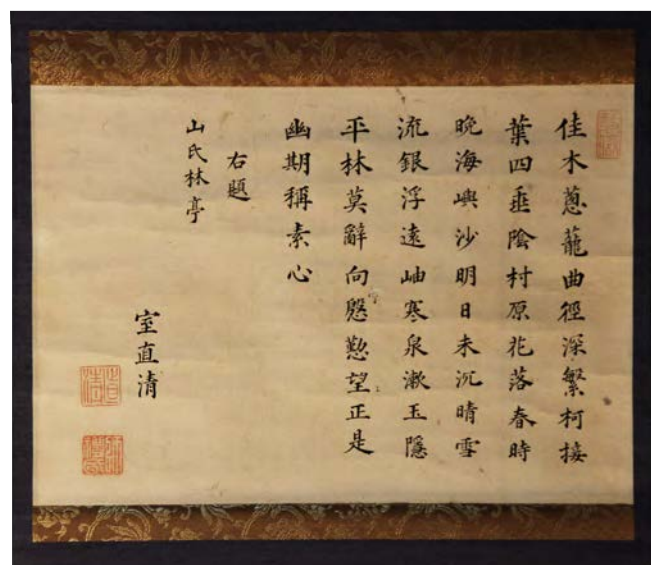 佳木蔥蘢曲徑深繁柯接
葉四垂陰村原花落春時
晩海嶼沙明日未沉晴雪
流銀浮遠岫寒泉漱玉隱
平林莫辭向慇懃望正是
幽期稱素心
右題
山氏林亭
室直清